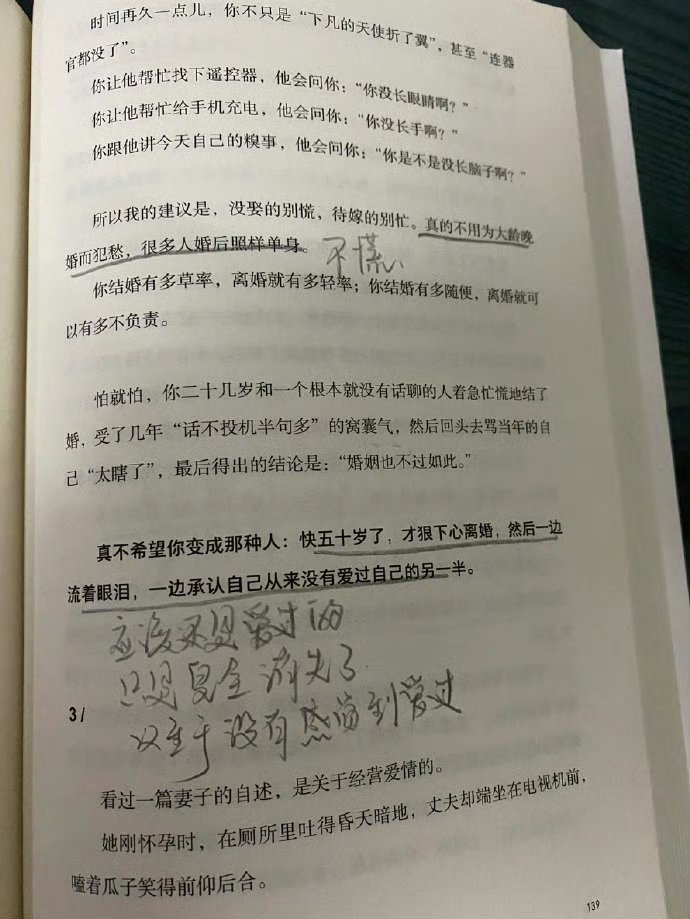 时间再久一点儿，你不只是“下凡的天使折了翼”，甚至“连器
官都没了”。
你让他帮忙找下遥控器，他会问你：“你没长眼睛啊？”
你让他帮忙给手机充电，他会问你：“你没长手啊？”
你跟他讲今天自己的糗事，他会问你：“你是不是没长脑子啊？”
所以我的建议是，没娶的别慌，待嫁的别忙。真的不用为大龄晚
婚而犯愁，很多人婚后照样单身。
不慌
你结婚有多草率，离婚就有多轻率；你结婚有多随便，离婚就可
以有多不负责。
怕就怕，你二十几岁和一个根本就没有话聊的人着急忙慌地结了
婚，受了几年“话不投机半句多”的窝囊气，然后回头去骂当年的自
己“太瞎了”，最后得出的结论是：“婚姻也不过如此。”
真不希望你变成那种人：快五十岁了，才狠下心离婚，然后一边
流着眼泪，一边承认自己从来没有爱过自己的另一半。
应该还是爱过的
只是完全消失了
3/
以至于没有感觉到爱过
看过一篇妻子的自述，是关于经营爱情的。
她刚怀孕时，在厕所里吐得昏天暗地，丈夫却端坐在电视机前，
嗑着瓜子笑得前仰后合。
139